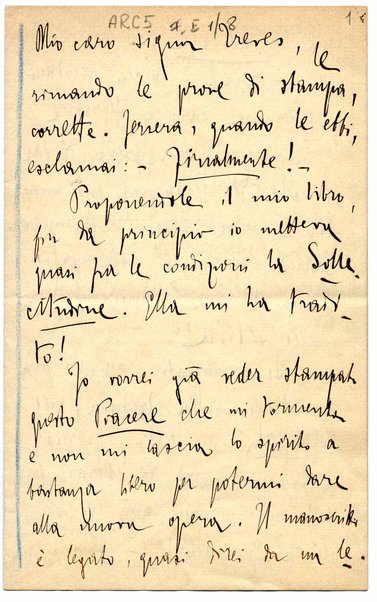 ARC5 I.E 1/98
Mio caro signor Treves, le
rimando le prove di stampa,
corrette. Jersera, quando le ebbi,
esclamai: - Finalmente! -
Proponendole il mio libro,
fin da principio io metteva
quasi fra le condizioni la Solle-
citudine. Ella mi ha tradi-
to!
Io vorrei già veder stampato
questo Piacere che mi tormenta
e non mi lascia lo spirito a
bastanza libero per potermi dare
alla nuova opera. Il manoscritto
è legato, quasi direi da un le.